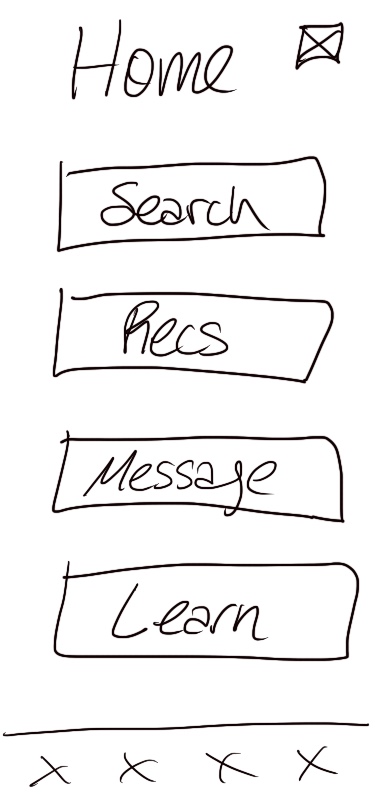 Home
Search
Recs
Message
Learn
X X X X